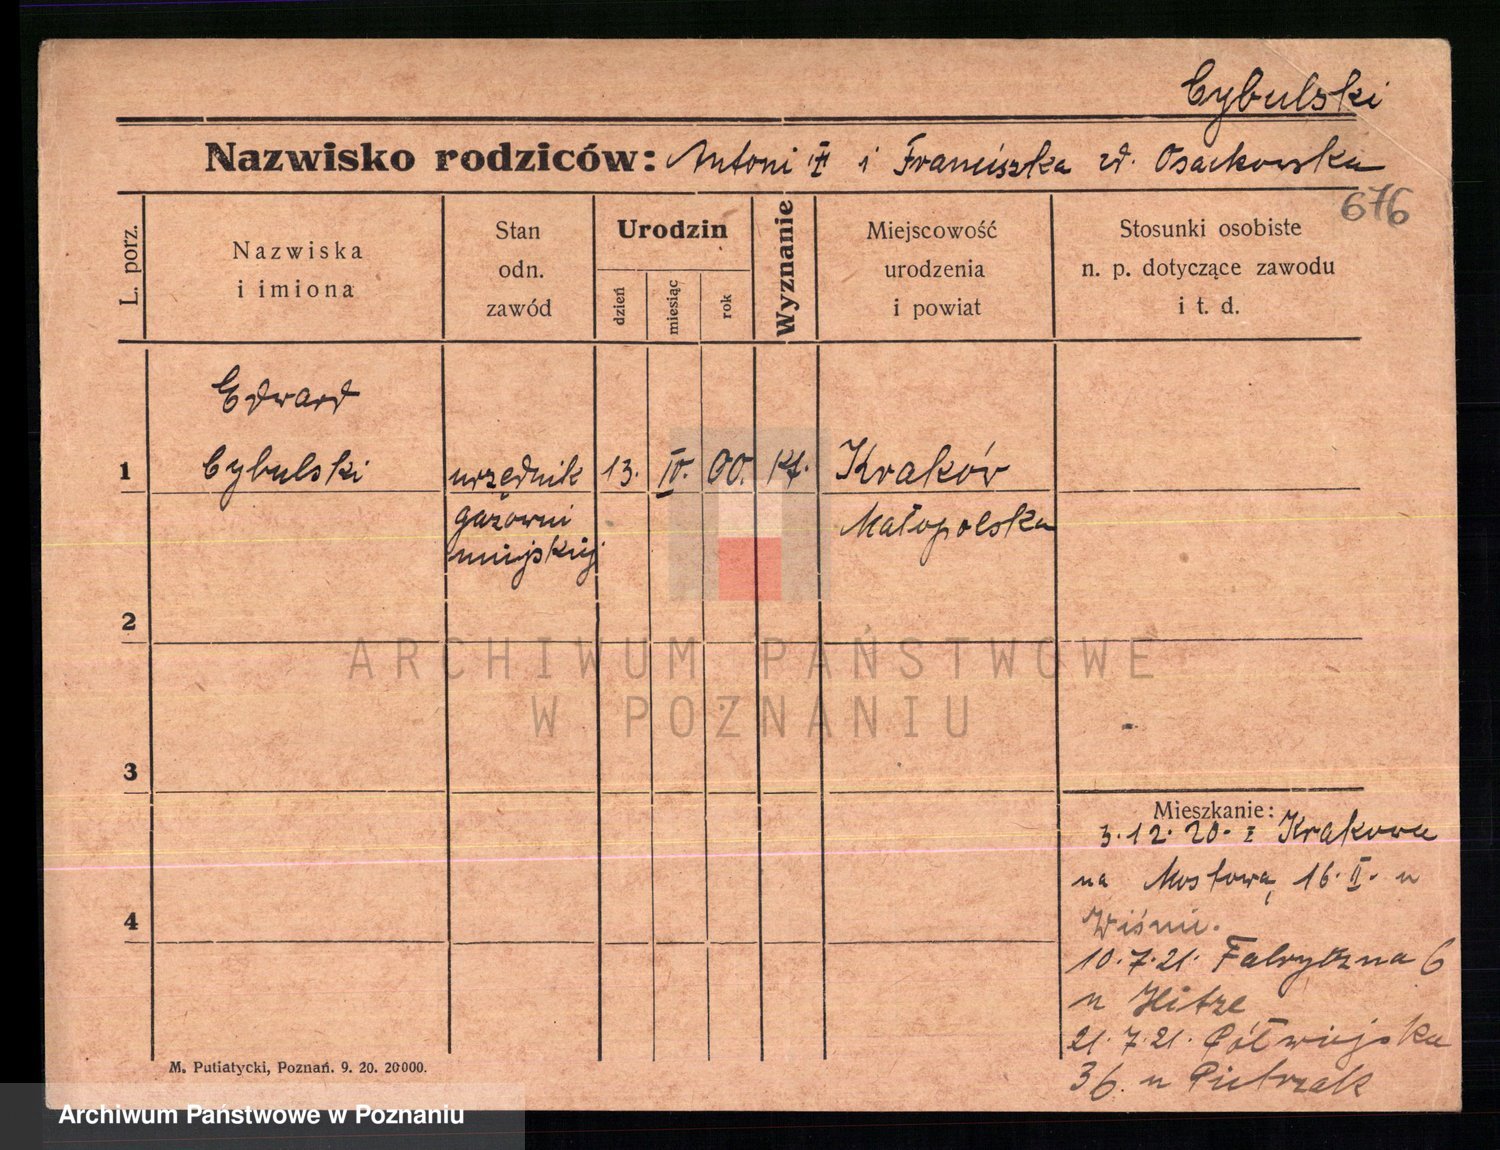 Cybulski
Nazwisko rodziców: Antoni i Franciszka zd. Osackowska
676
L. porz.
Nazwiska
i imiona
Stan
odn.
zawód
Urodzin
dzień
miesiąc
rok
Wyznanie
Miejscowość
urodzenia
i powiat
Stosunki osobiste
n. p. dotyczące zawodu
i t. d.
Edward
1 Cybulski urzędnik 13. IV. 00. kt. Kraków
gazowni Małopolska
miejskiej
2
3
Mieszkanie:
3.12.20. z Krakowa
na Mostową 16. II. u
4
Wiśni.
10.7.21. Fabryczna 6
u Hitze
21.7.21. Półwiejska
36. u Pietrzak
M. Putiatycki, Poznań. 9. 20. 20000.
ARCHIWUM PAŃSTWOWE
W POZNANIU
Archiwum Państwowe w Poznaniu